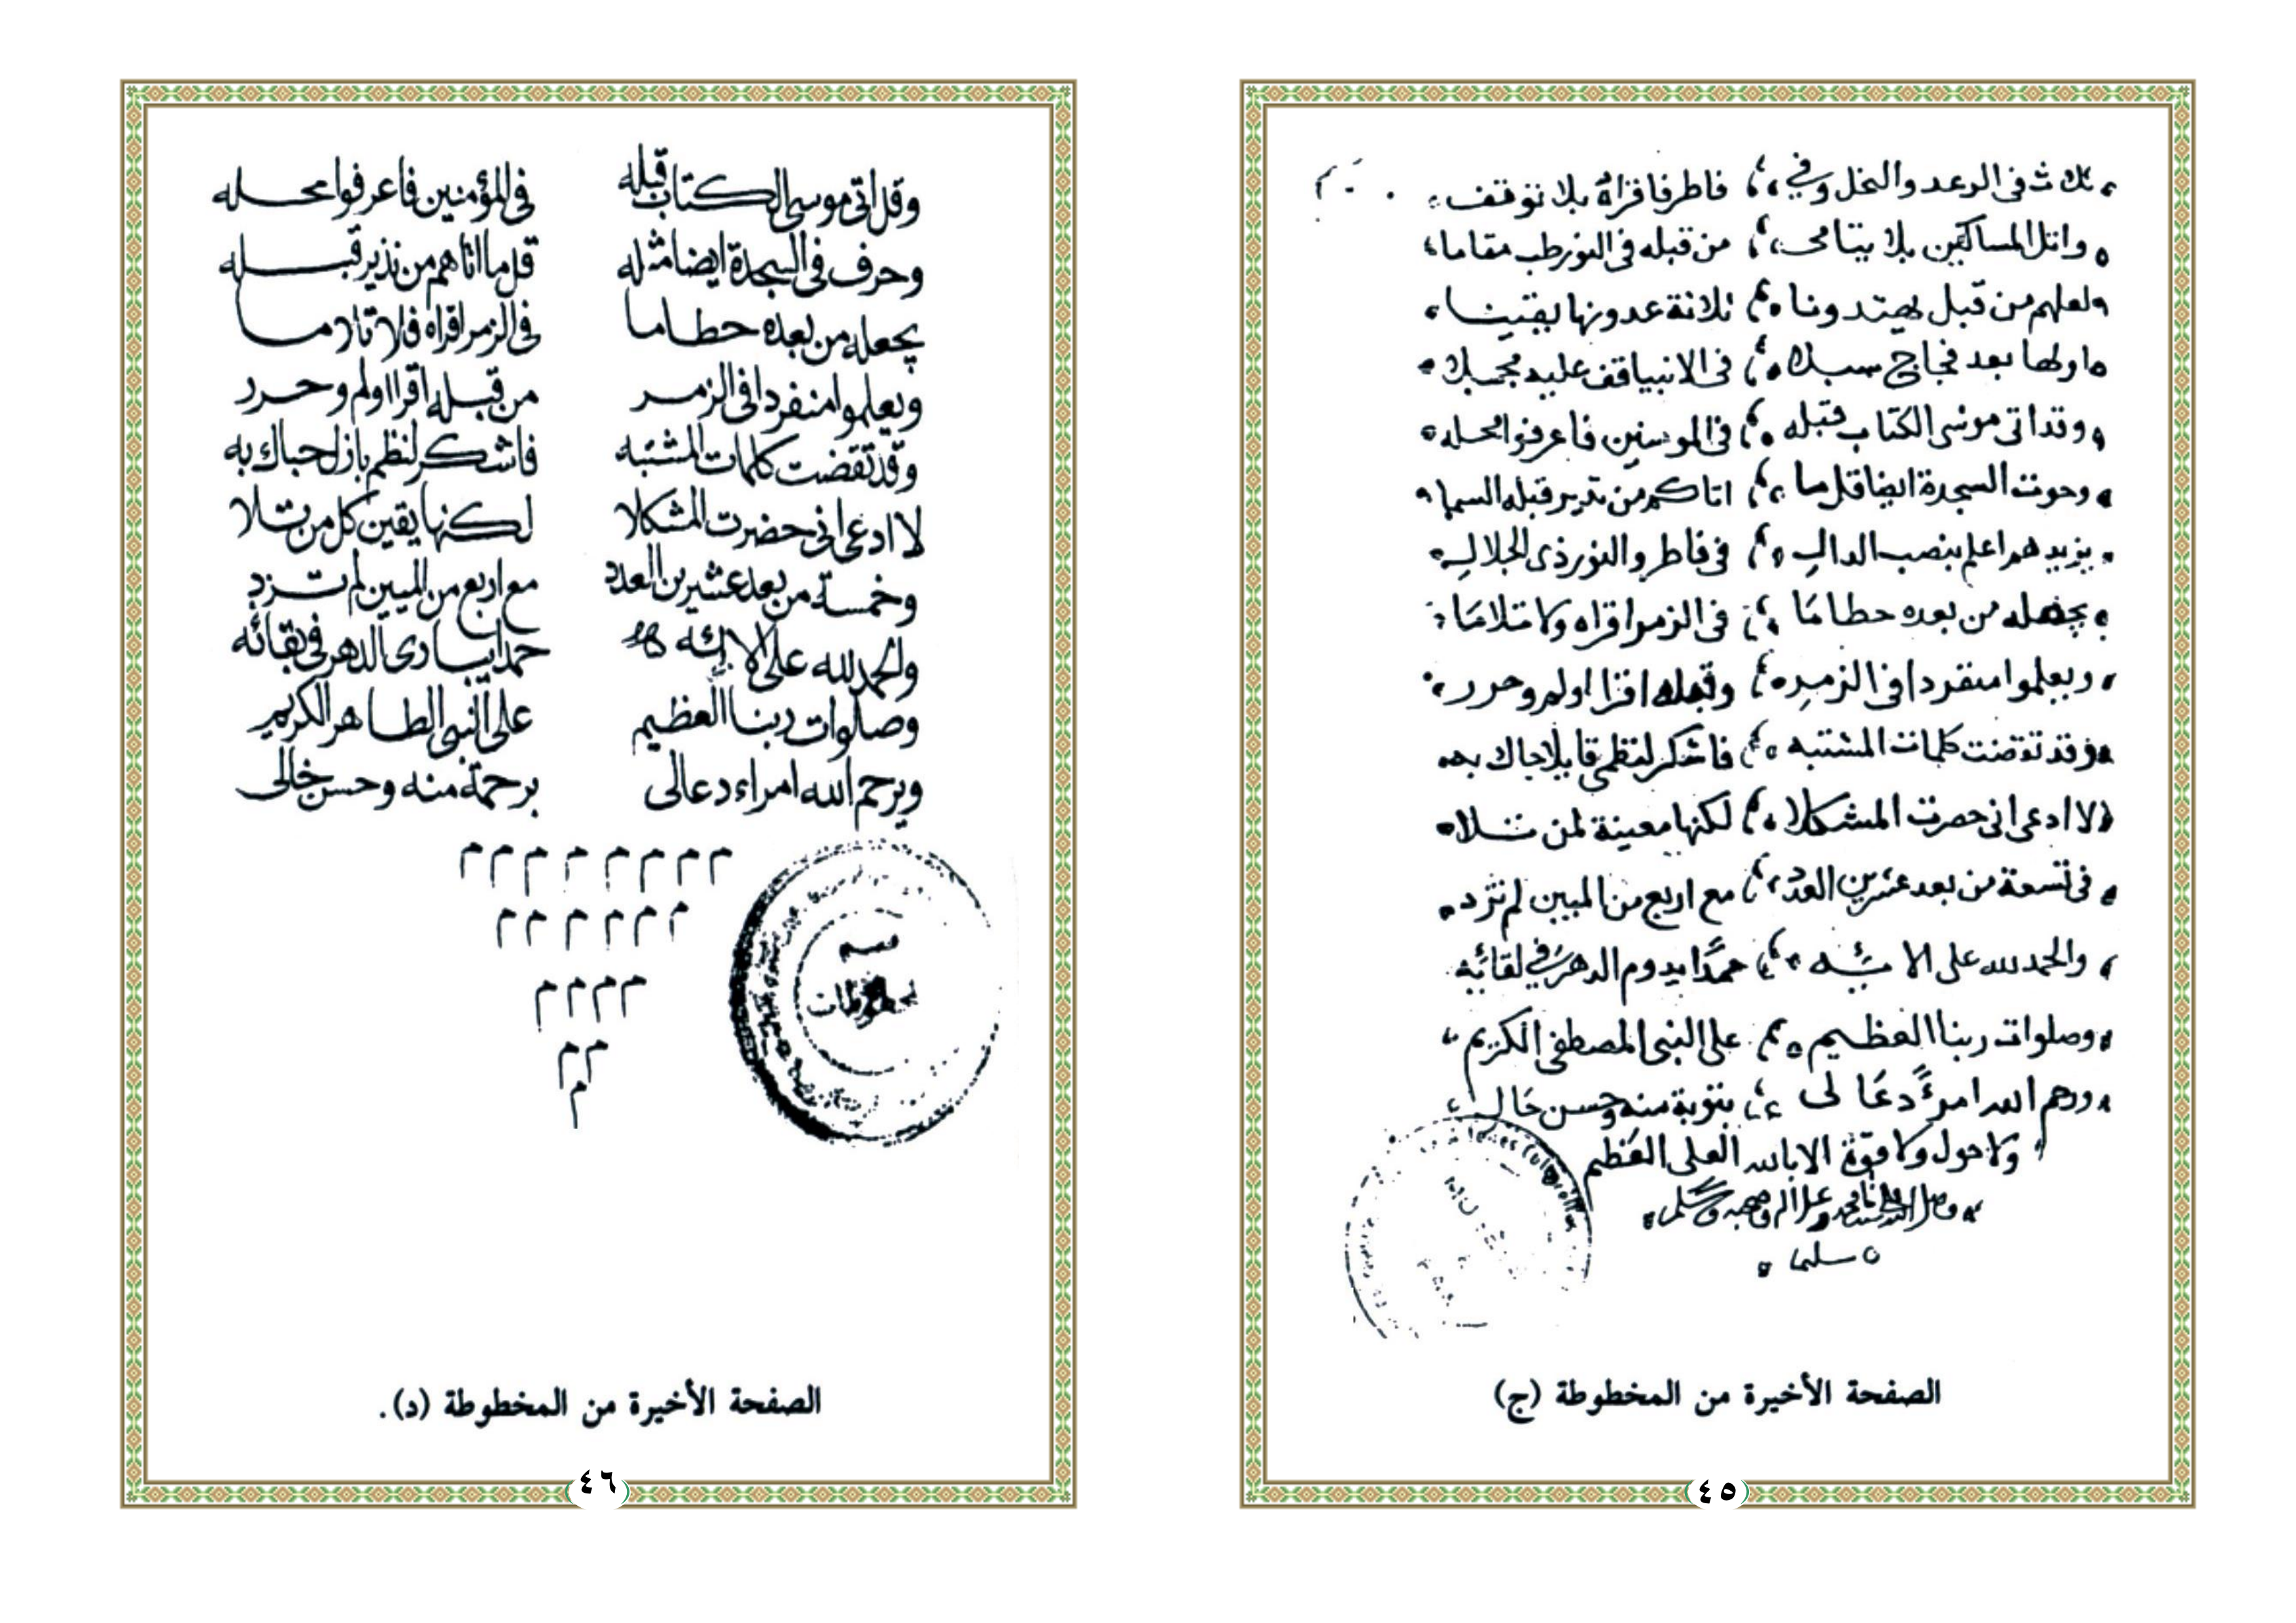 ثلاث فى الرعد والنحل وفي فاطر فاقراه بلا توقف
واتل المساكين بلا يتامى من قبله فى النور طب مقاما
لعلهم من قبل يهتدونا ثلاثة عدونها يقينا
اولها بعد فجاج سبلا فى الانبيا قف عليه
وقد اتى موسى الكتاب قبله فى المومنين فاعرفوا محله
وحوت السجدة ايضا قل ما اتاكم من نذير قبله
يزيدهم اعلم بنصب الدال فى فاطر والنور ذى الجلال
يجعله من بعده حطاما فى الزمر اقراه ولا تلاما
ويعلموا منفردا فى الزمر وقبله اقرا اولم وحرر
وقد تقضت كلمات المشتبه فاشكر لنظمى قابلا حباك به
لا ادعى انى حصرت المشكلا لكنها معينة لمن تلا
فى تسعة من بعد عشرين العدد مع اربع من الميين لم تزد
والحمد لله على الائه حمدا يدوم الدهر فى لقائه
وصلوات ربنا العظيم على النبى المصطفى الكريم
ورحم الله امرءً دعَا لى بتوبة منه وحسن حَال
ولا حول ولا قوة الا بالله العلى العظيم
وصلى الله على سيدنا محمد وعلى اله وصحبه وسلم
سليما
الصفحة الأخيرة من المخطوطة (ج)
٤٥
وقد اتى موسى الكتاب قبله فى المؤمنين فاعرفوا محله
وحرف فى السجدة ايضا مثله قل ما اتاهم من نذير قبله
يجعله من بعده حطاما فى الزمر اقراه فلا تلاما
ويعلموا منفردا فى الزمر من قبله اقرا اولم وحرر
وقد تقضت كلمات المشتبه فاشكر لنظم باذل حباك به
لا ادعى انى حضرت المشكلا لكنها يقين كل من تلا
وخمسة من بعد عشرين العدد مع اربع من الميين لم تزد
والحمد لله على الائه حمدا يبادى الدهر فى بقائه
وصلوات ربنا العظيم على النبى الطاهر الكريم
ويرحم الله امراء دعالى برحمة منه وحسن خالى
م م م م م م م م
م م م م م م
م م م م
م م
م
قسم
المخطوطات
الصفحة الأخيرة من المخطوطة (د).
٤٦